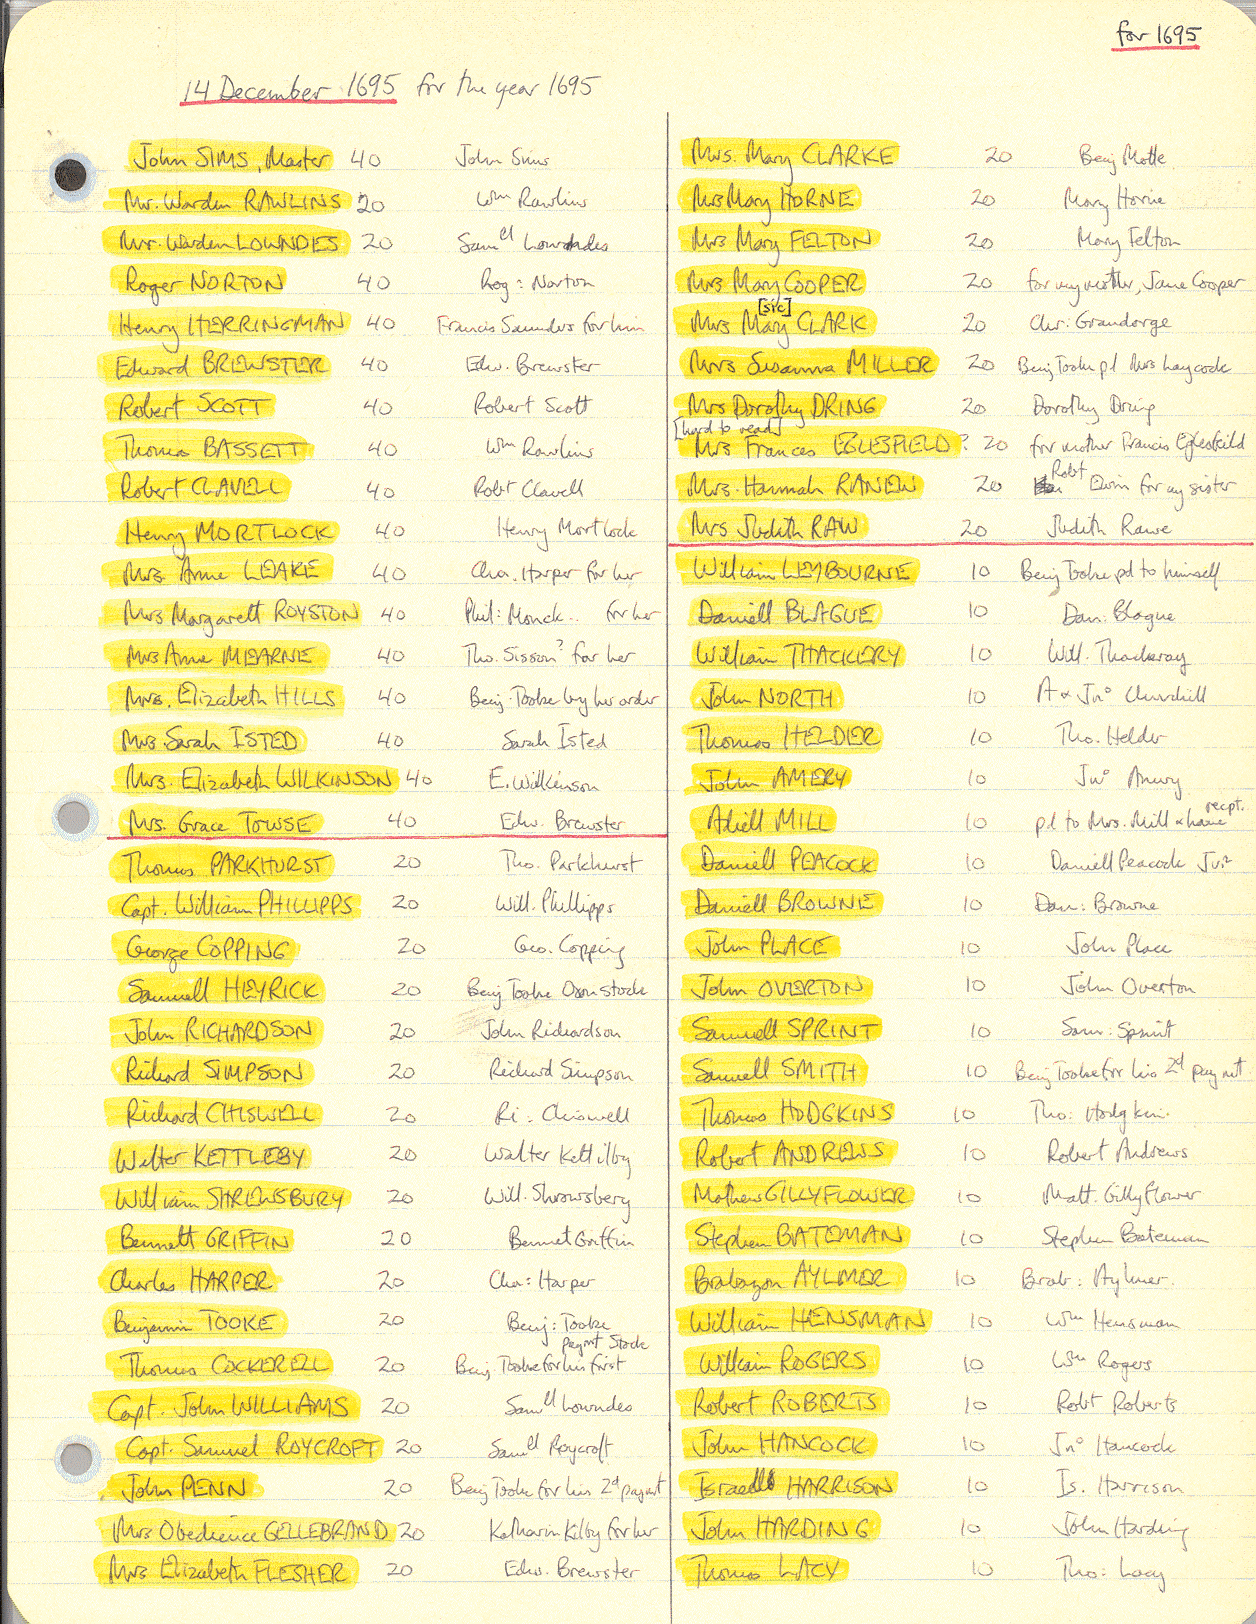 for 1695
14 December 1695 for the year 1695
John SIMS, Master 40 John Sims
Mr. Warden RAWLINS 20 Wm Rawlins
Mr. Warden LOWNDES 20 Samll Lowndes
Roger NORTON 40 Rog: Norton
Henry HERRINGMAN 40 Francis Saunders for him
Edward BREWSTER 40 Edw. Brewster
Robert SCOTT 40 Robert Scott
Thomas BASSETT 40 Wm Rawlins
Robert CLAVELL 40 Robt Clavell
Henry MORTLOCK 40 Henry Mortlock
Mrs. Anne LEAKE 40 Cha. Harper for her
Mrs Margarett ROYSTON 40 Phil: Monck.. for her
Mrs Anne MEARNE 40 Tho. Sisson? for her
Mrs. Elizabeth HILLS 40 Benj. Tooke by her order
Mrs. Sarah ISTED 40 Sarah Isted
Mrs. Elizabeth WILKINSON 40 E. Wilkinson
Mrs. Grace TOWSE 40 Edw. Brewster
Thomas PARKHURST 20 Tho. Parkhurst
Capt. William PHILLIPPS 20 Will. Phillipps
George COPPING 20 Geo. Copping
Samuell HEYRICK 20 Benj Tooke Own stock
John RICHARDSON 20 John Richardson
Richard SIMPSON 20 Richard Simpson
Richard CHISWELL 20 Ri: Chiswell
Walter KETTLEBY 20 Walter Kettilby
William SHREWSBURY 20 Will. Shrowsbery
Bennett GRIFFIN 20 Bennet Griffin
Charles HARPER 20 Cha: Harper
Benjamin TOOKE 20 Benj: Tooke
paymt Stock
Thomas COCKERELL 20 Benj. Tooke for his first
Capt. John WILLIAMS 20 Samll Lowndes
Capt. Samuel ROYCROFT 20 Samll Roycroft
John PENN 20 Benj Tooke for his 2d paymt
Mrs Obedience GELLEBRAND 20 Katharin Kilby for her
Mrs Elizabeth FLESHER 20 Edw. Brewster
Mrs. Mary CLARKE 20 Benj Motte
Mrs Mary HORNE 20 Mary Horne
Mrs Mary FELTON 20 Mary Felton
Mrs Mary COOPER 20 for my mother, Jane Cooper
[sic]
Mrs Mary CLARK 20 Chr: Grandorge
Mrs Susanna MILLER 20 Benj Tooke pd Mrs Laycock
Mrs Dorothy DRING 20 Dorothy Dring
[hard to read]
Mrs Frances EGLESFIELD? 20 for mother Francis Eglesfeild
Mrs. Hannah RANEW 20 Robt Elwin for my sister
Mrs Judith RAW 20 Judith Rawe
William LEYBOURNE 10 Benj Tooke pd to himself
Daniell BLAGUE 10 Dan: Blague
William THACKERY 10 Will. Thackeray
John NORTH 10 A & Jno Churchill
Thomas HELDER 10 Tho. Helder
John AMERY 10 Jno Amery
Abiell MILL 10 pd to Mrs. Mill & have recpt.
Daniell PEACOCK 10 Daniell Peacock Junr
Daniell BROWNE 10 Dan: Browne
John PLACE 10 John Place
John OVERTON 10 John Overton
Samuell SPRINT 10 Sam: Sprint
Samuell SMITH 10 Benj Tooke for his 2d paymt.
Thomas HODGKINS 10 Tho: Hodgkin.
Robert ANDREWS 10 Robert Andrews
Mathew GILLYFLOWER 10 Matt. Gillyflower
Stephen BATEMAN 10 Stephen Bateman
Brabazon AYLMER 10 Brab: Aylmer.
William HENSMAN 10 Wm Hensman
William ROGERS 10 Wm Rogers
Robert ROBERTS 10 Robt Roberts
John HANCOCK 10 Jno Hancock
Israell HARRISON 10 Is. Harrison
John HARDING 10 John Harding
Thomas LACY 10 Tho: Lacy